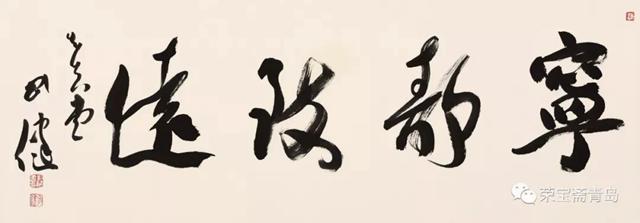 寧靜致遠
荣宝斋青岛